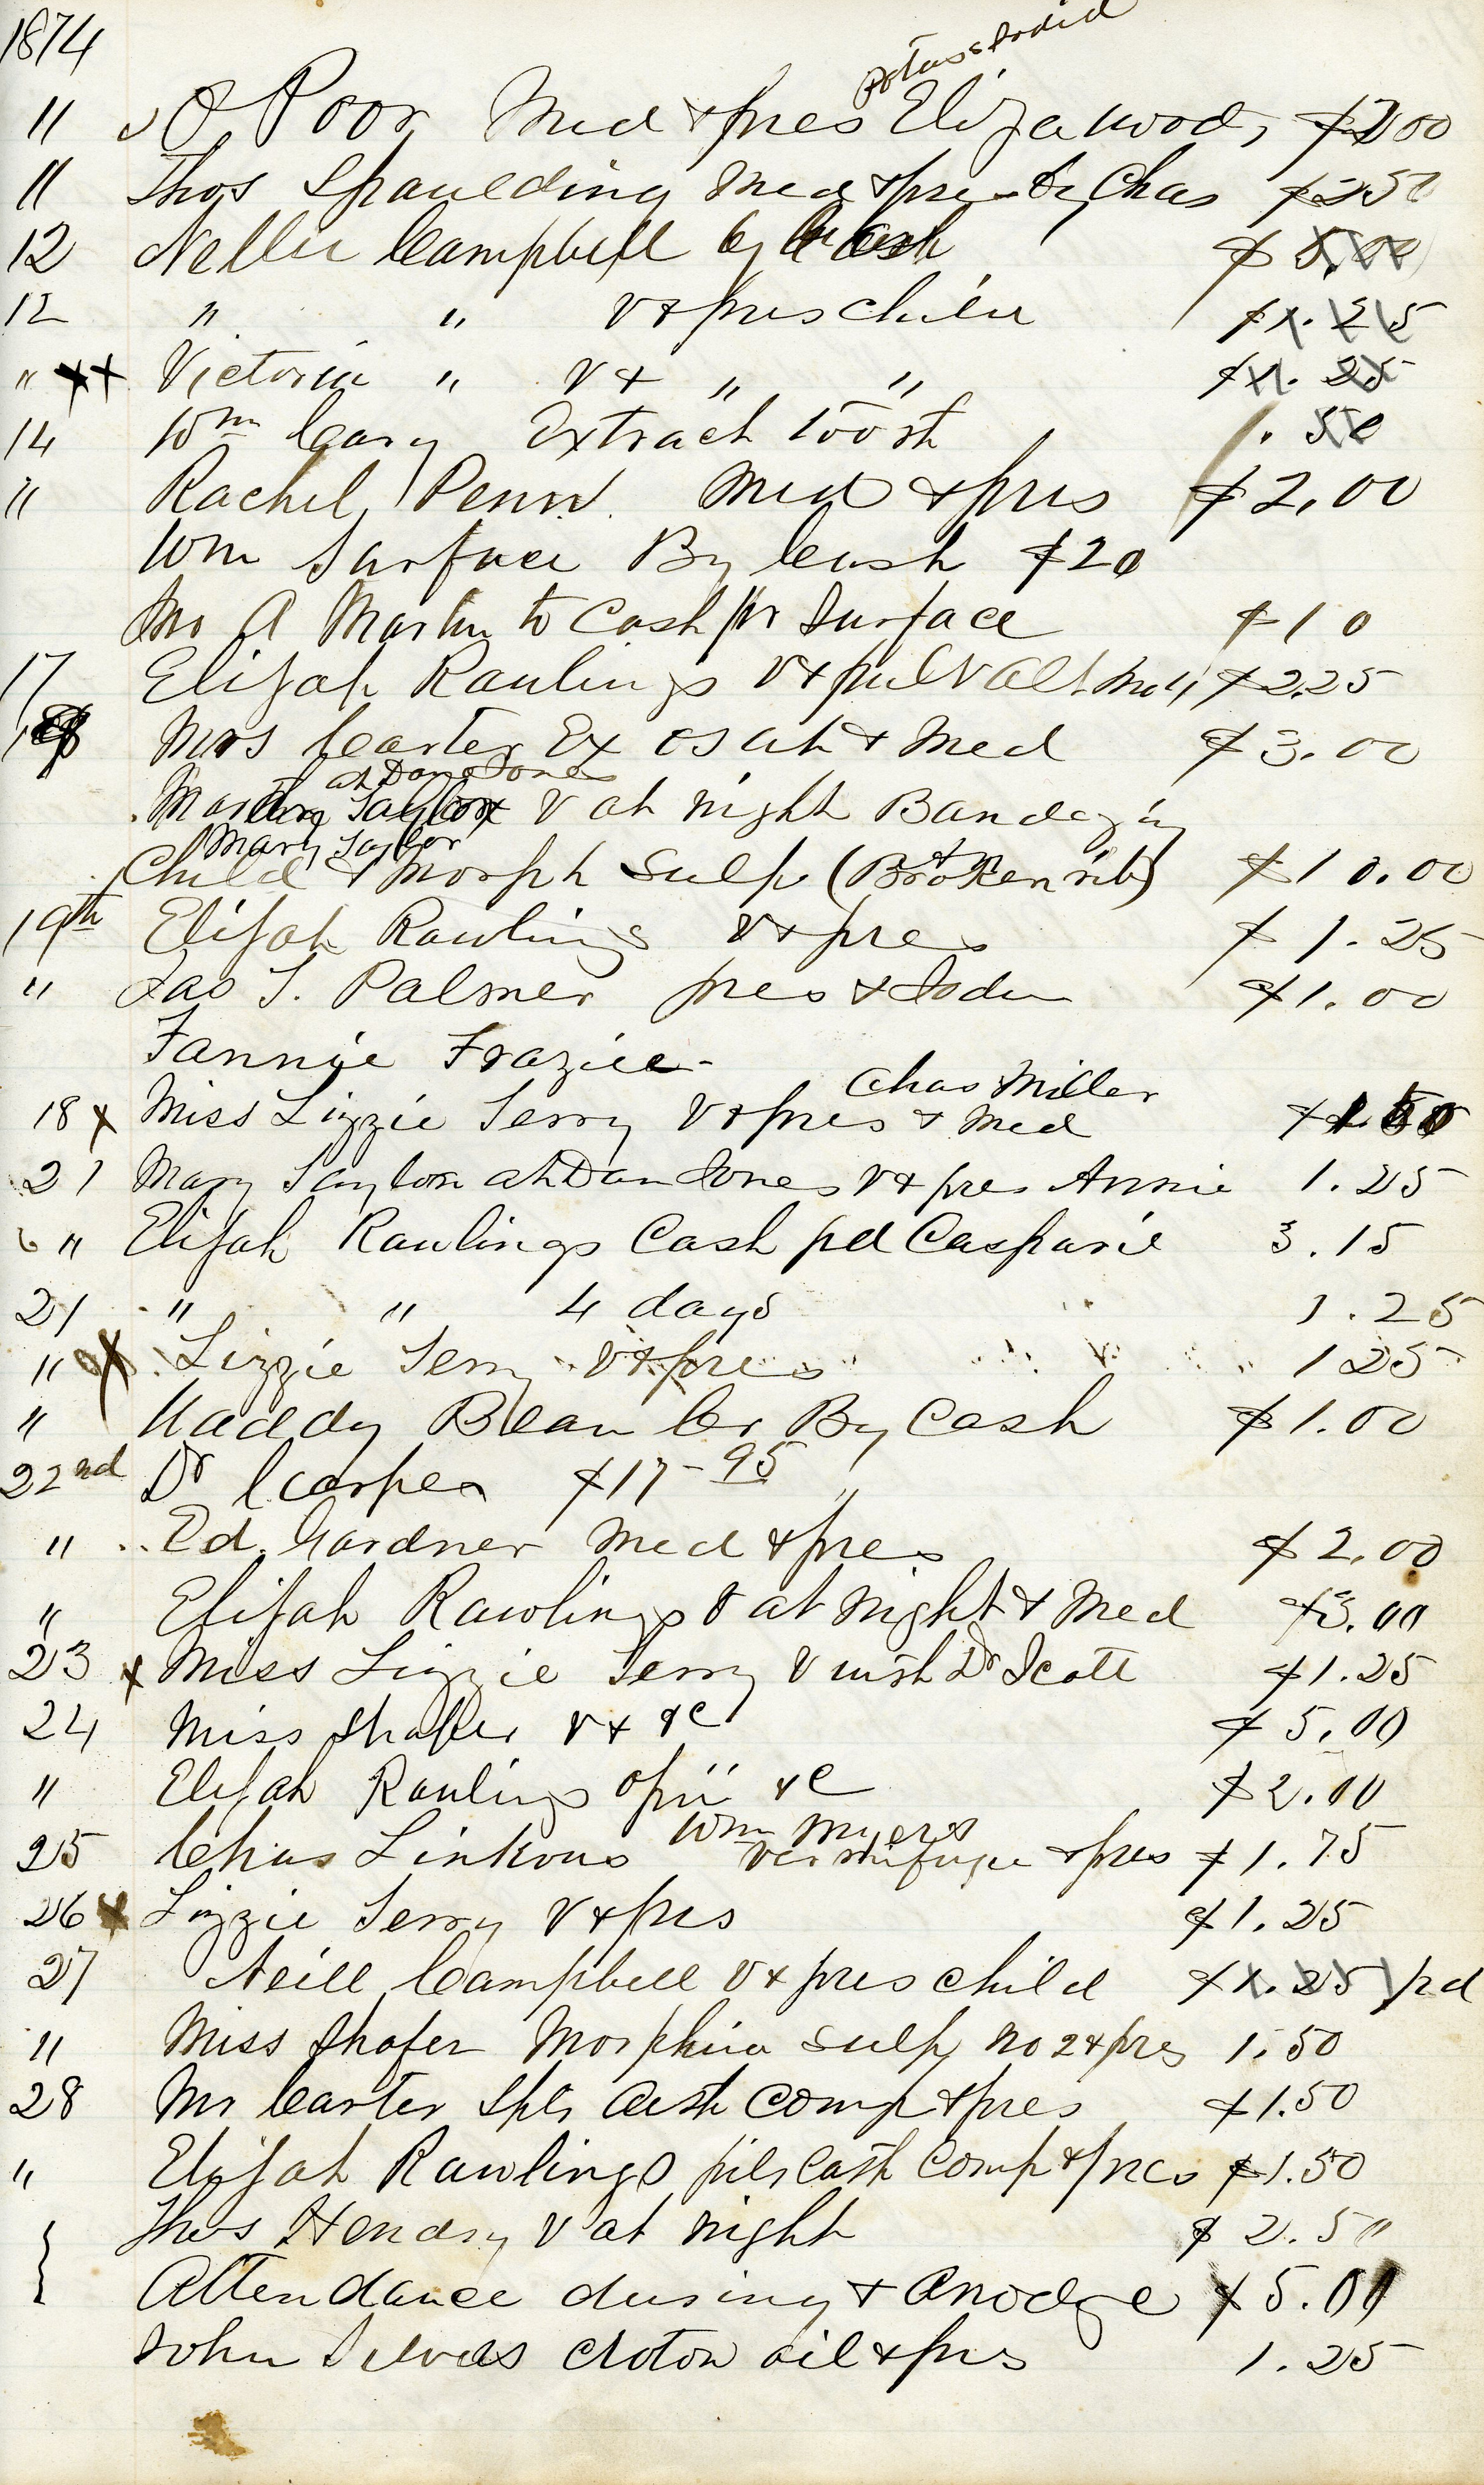 1874
Potass Iodid
" O Poor Med & pres Eliza wood, $2 00
" Thos Spaulding Med & pres by Chas $2 50
12 Nellie Campbell by Cash $ 5.00
12 " " V & pres Child $1.25
" xx Victoria " V & " " $1.25
14 Wm Cary Extract tooth .50
" Rachel Penn Med & pres $2.00
Wm Surface By Cash $20
A Martin to Cash pr Surface $10
17 Elijah Rawlings V & pulv $2.25
18 Mrs Carter Ex & Med $3.00
at Dan Jones
Martha Taylor V at night Bandaging
Mary Taylor
Child & Morph Sulp (Broken rib) $10.00
19th Elijah Rawlings V & pres $1.25
" Jas T. Palmer pres & Iodin $1.00
Fannie Frazier
Chas Miller
18 x Miss Lizzie Terry V & pres & Med $1.50
21 Mary Taylor at Dan Jones V & pres Annie 1.25
" Elijah Rawlings Cash pd Casparie 3.15
21 " " 4 days 1.25
" x Lizzie Terry V & pres 1 25
" Waddy Bean Cr By Cash $1.00
22nd Dr $17-95
" Ed. Gardner Med & pres $2.00
" Elijah Rawlings V at night & Med $3.00
23 x Miss Lizzie Terry V with Dr Scott $1.25
24 Miss Shafer V & &c $5.00
" Elijah Rawlings opii &c $2.00
Wm Myers
25 Chas Linkous Vermifuge & pres $1.75
26 x Lizzie Terry V & pres $1.25
27 Neill Campbell V & pres child $1.25 pd
" Miss Shafer Morphia Sulp no 2 & pres 1.50
28 Mr Carter Cath Comp & pres $1.50
" Elijah Rawlings pils Cath Comp & pres $1.50
Thos Hendry V at night $2.50
Attendance during & $5.00
John croton oil & pres 1.25